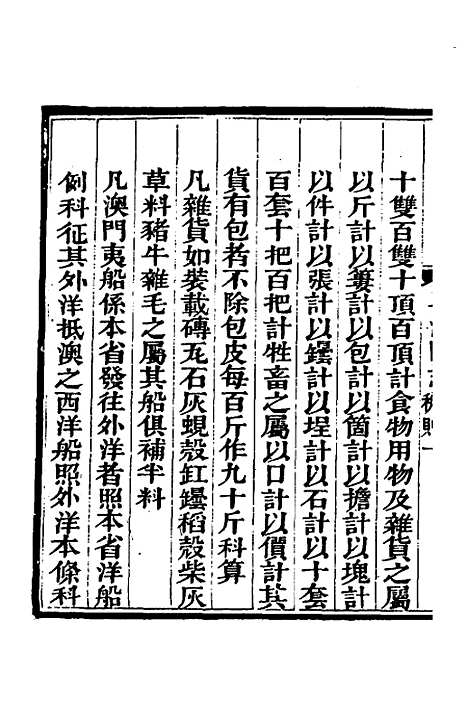 十雙百雙十頂百頂計食物用物及雜貨之屬
以斤計以簍計以包計以箇計以擔計以塊計
以件計以張計以鑼計以埕計以石計以十套
百套十把百把計牲畜之屬以口計以價計其
貨有包者不除包皮每百斤作九十斤科算
凡雜貨如裝載磚瓦石灰蜆殼缸稻殼柴灰
草料豬牛雜毛之屬其船俱補半料
凡澳門夷船係本省發往外洋者照本省洋船
例科征其外洋抵澳之西洋船照外洋本條科